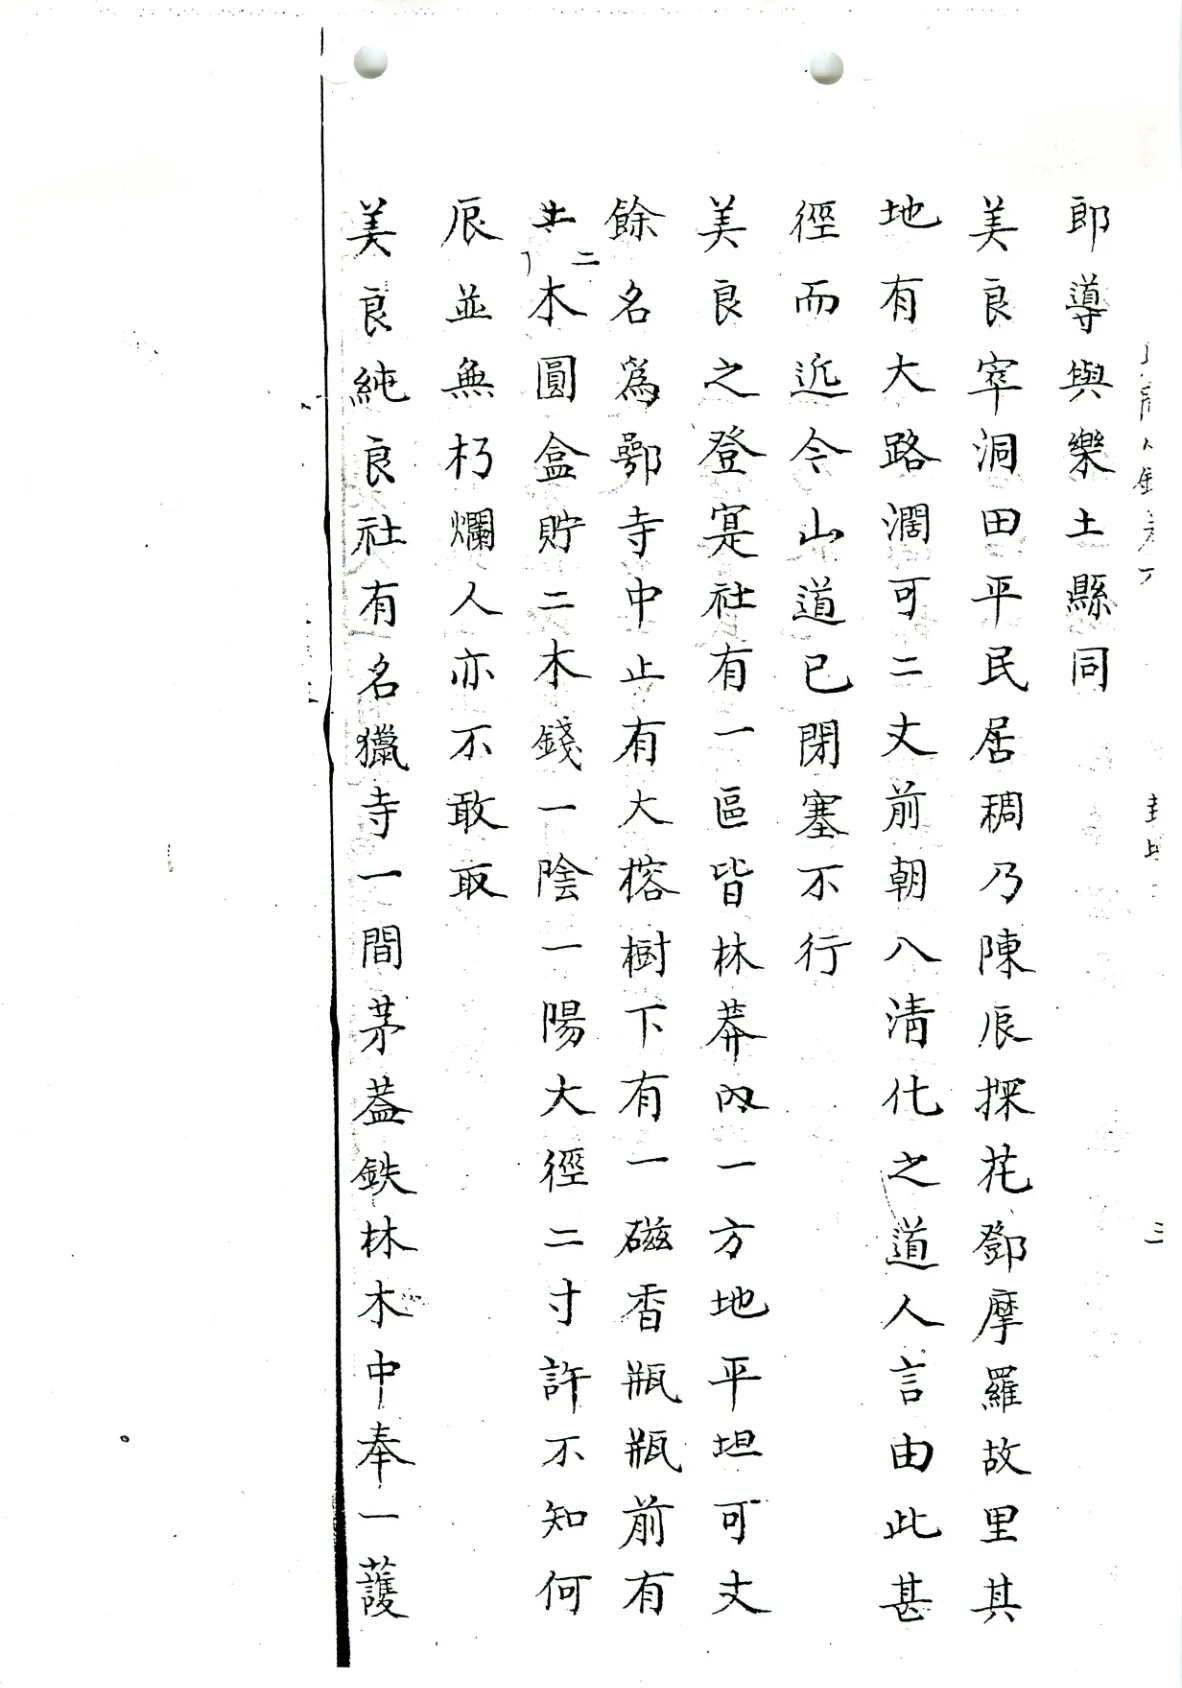 郎導與樂土縣同
美良窂洞田平民居稠乃陳辰探花鄧摩羅故里其
地有大路濶可二丈前朝入清化之道人言由此甚
徑而近今山道已閉塞不行
美良之登寔社有一區皆林莽内一方地平坦可丈
餘名為鄂寺中止有大榕樹下有一磁香瓶瓶前有
二木圓盒貯二木錢一陰一陽大徑二寸許不知何
辰並無朽爛人亦不敢取
美良純良社有名獵寺一間茅葢鉄林木中奉一護